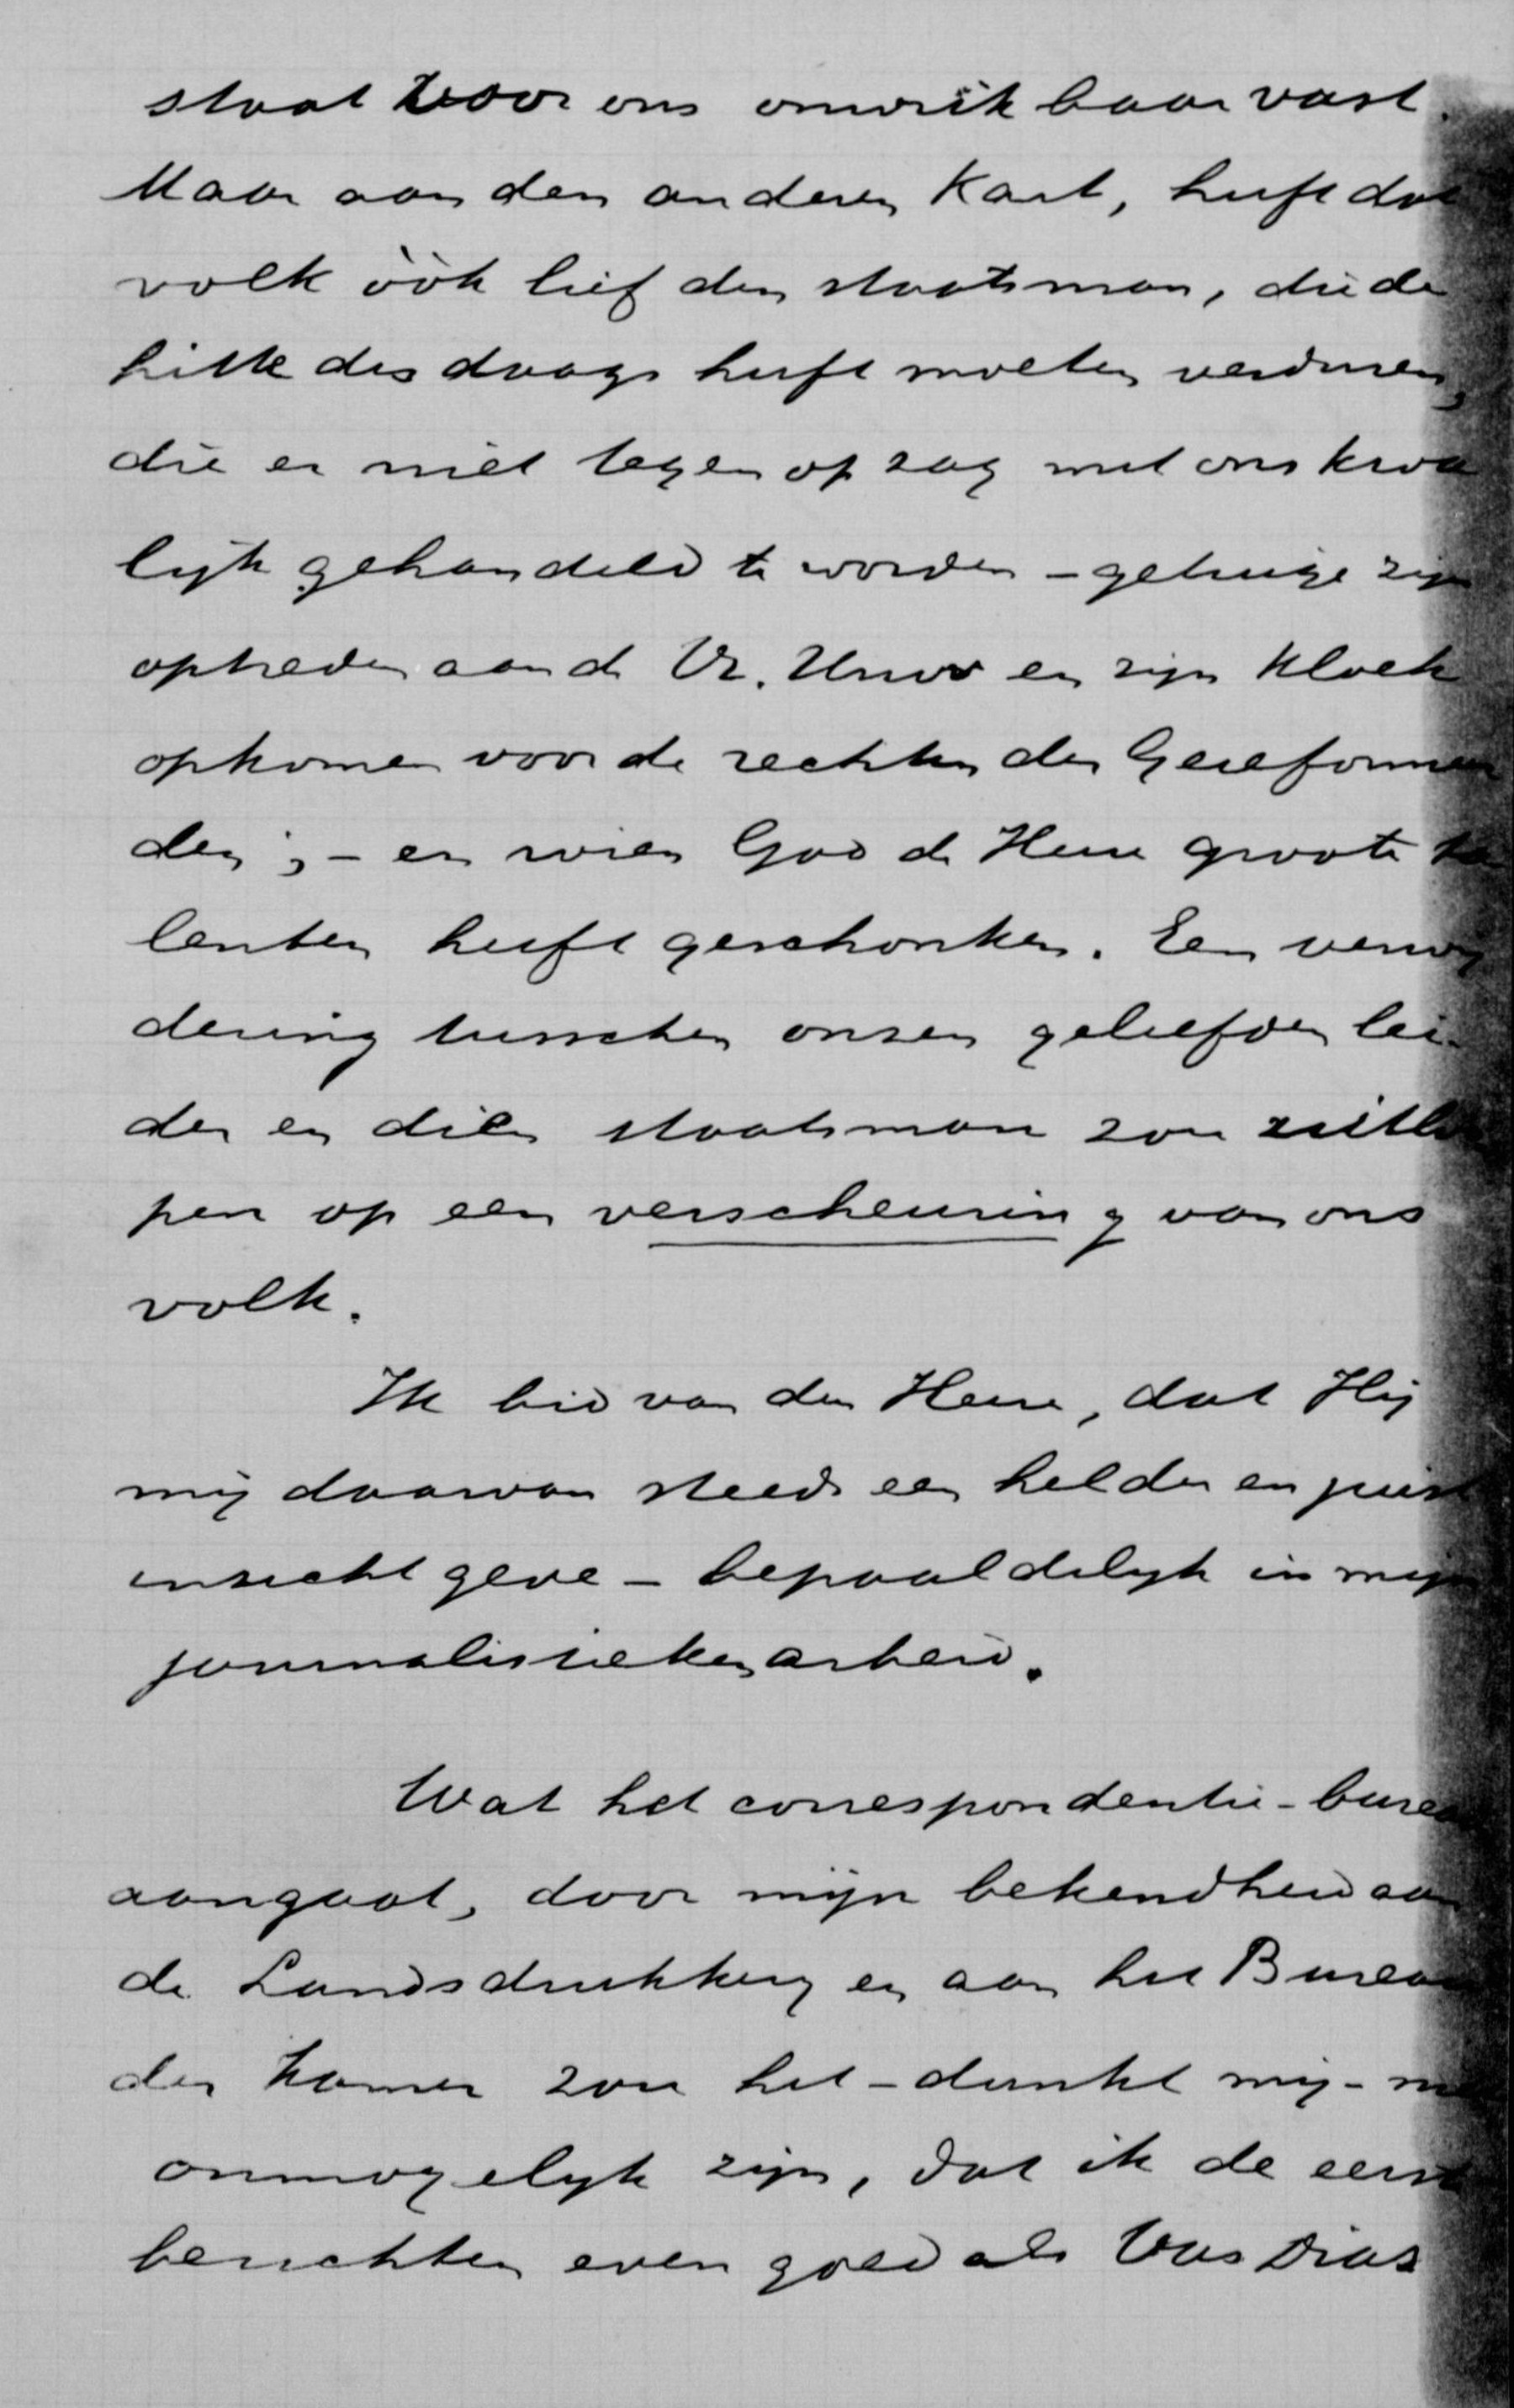 staat voor ons onwrikbaar vast.
Maar aan den anderen kant, heeft dat
volk òòk lief den staatsman, die de
hitte des daags heeft moeten verduren,
die er niet tegen op zag met ons kwa
lijk gehandeld te worden - getuige zijn
optreden aan de Vr. Univ en zijn kloek
opkomen voor de rechten der Gereformeer
den; - en wien God de Heere groote ta
lenten heeft geschonken. Een verwij
dering tusschen onzen geliefden lei-
der en dien staatsman zou uitloo
pen op een verscheuring van ons
volk.
Ik bid van den Heere, dat Hij
mij daarvan steeds een helder en juist
inzicht geve - bepaaldelijk in mijn
journalistieken arbeid.
Wat het correspondentie-bureau
aangaat, door mijn bekendheid aan
de Landsdrukkerij en aan het Bureau
der Kamer zou het - dunkt mij -
onmogelijk zijn, dat ik de eerste
berichten even goed als Vas Dias